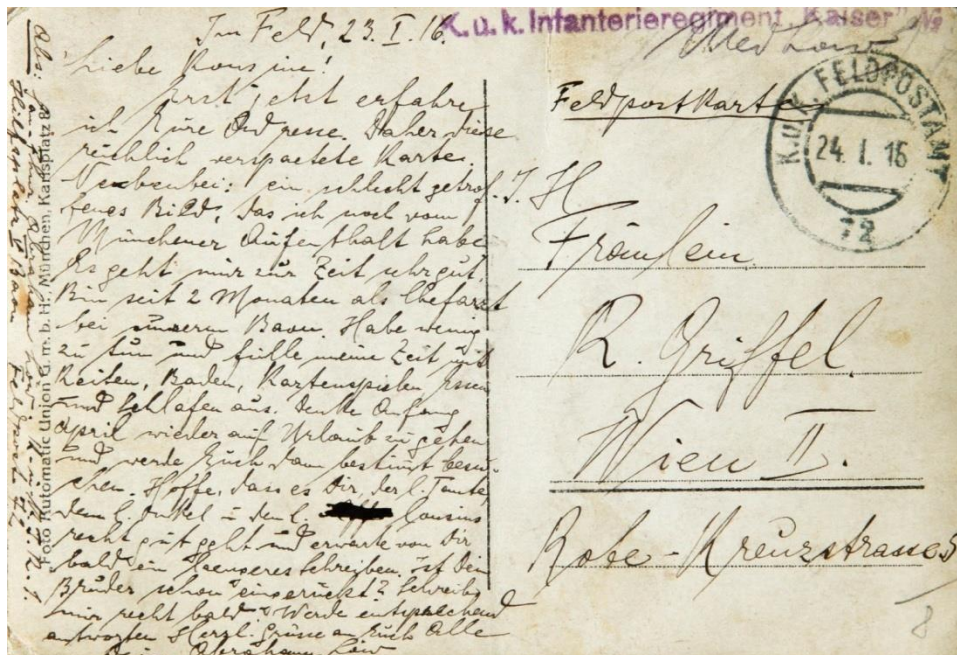 Im Feld, 23. I. 16.
Liebe Kousine!
Erst jetzt erfahre
ich Eure Adresse. Daher diese
reichlich verspaetete Karte.
Nebenbei: ein schlecht getrof-
fenes Bild, das ich noch vom
Münchener Aufenthalt habe.
Es geht mir zur Zeit sehr gut.
Bin seit 2 Monaten als Chefarzt
bei unserm Baon. Habe wenig
zu tun und fülle meine Zeit mit
Reiten, Baden, Kartenspielen Essen
und Schlafen aus. Denke Anfang
April wieder auf Urlaub zu gehen
und werde Euch dann bestimt besu-
chen. Hoffe, dass es Dir, der l. Tante
dem l. Onkel u den l. Cousins
recht gut geht und erwarte von Dir
bald ein Laengeres Schreiben. Ist Dein
Bruder schon eingerückt? Schreibe
mir recht bald. Werde entsprechend
antworten Herzl. Grüsse an Euch Alle
Abraham Löw
Abs:
Abraham Löw
Feldpost
Foto Automatic Union G. m. b. H., München, Karlsplatz 8
K. u. k. Infanterieregiment "Kaiser" №
Feldpostkarte
K.u.K. FELDPOSTAMT
24. I. 16
72
I. H
Fräulein
R. Griffel.
Wien II.
Rote-Kreuzstrasse 5
8